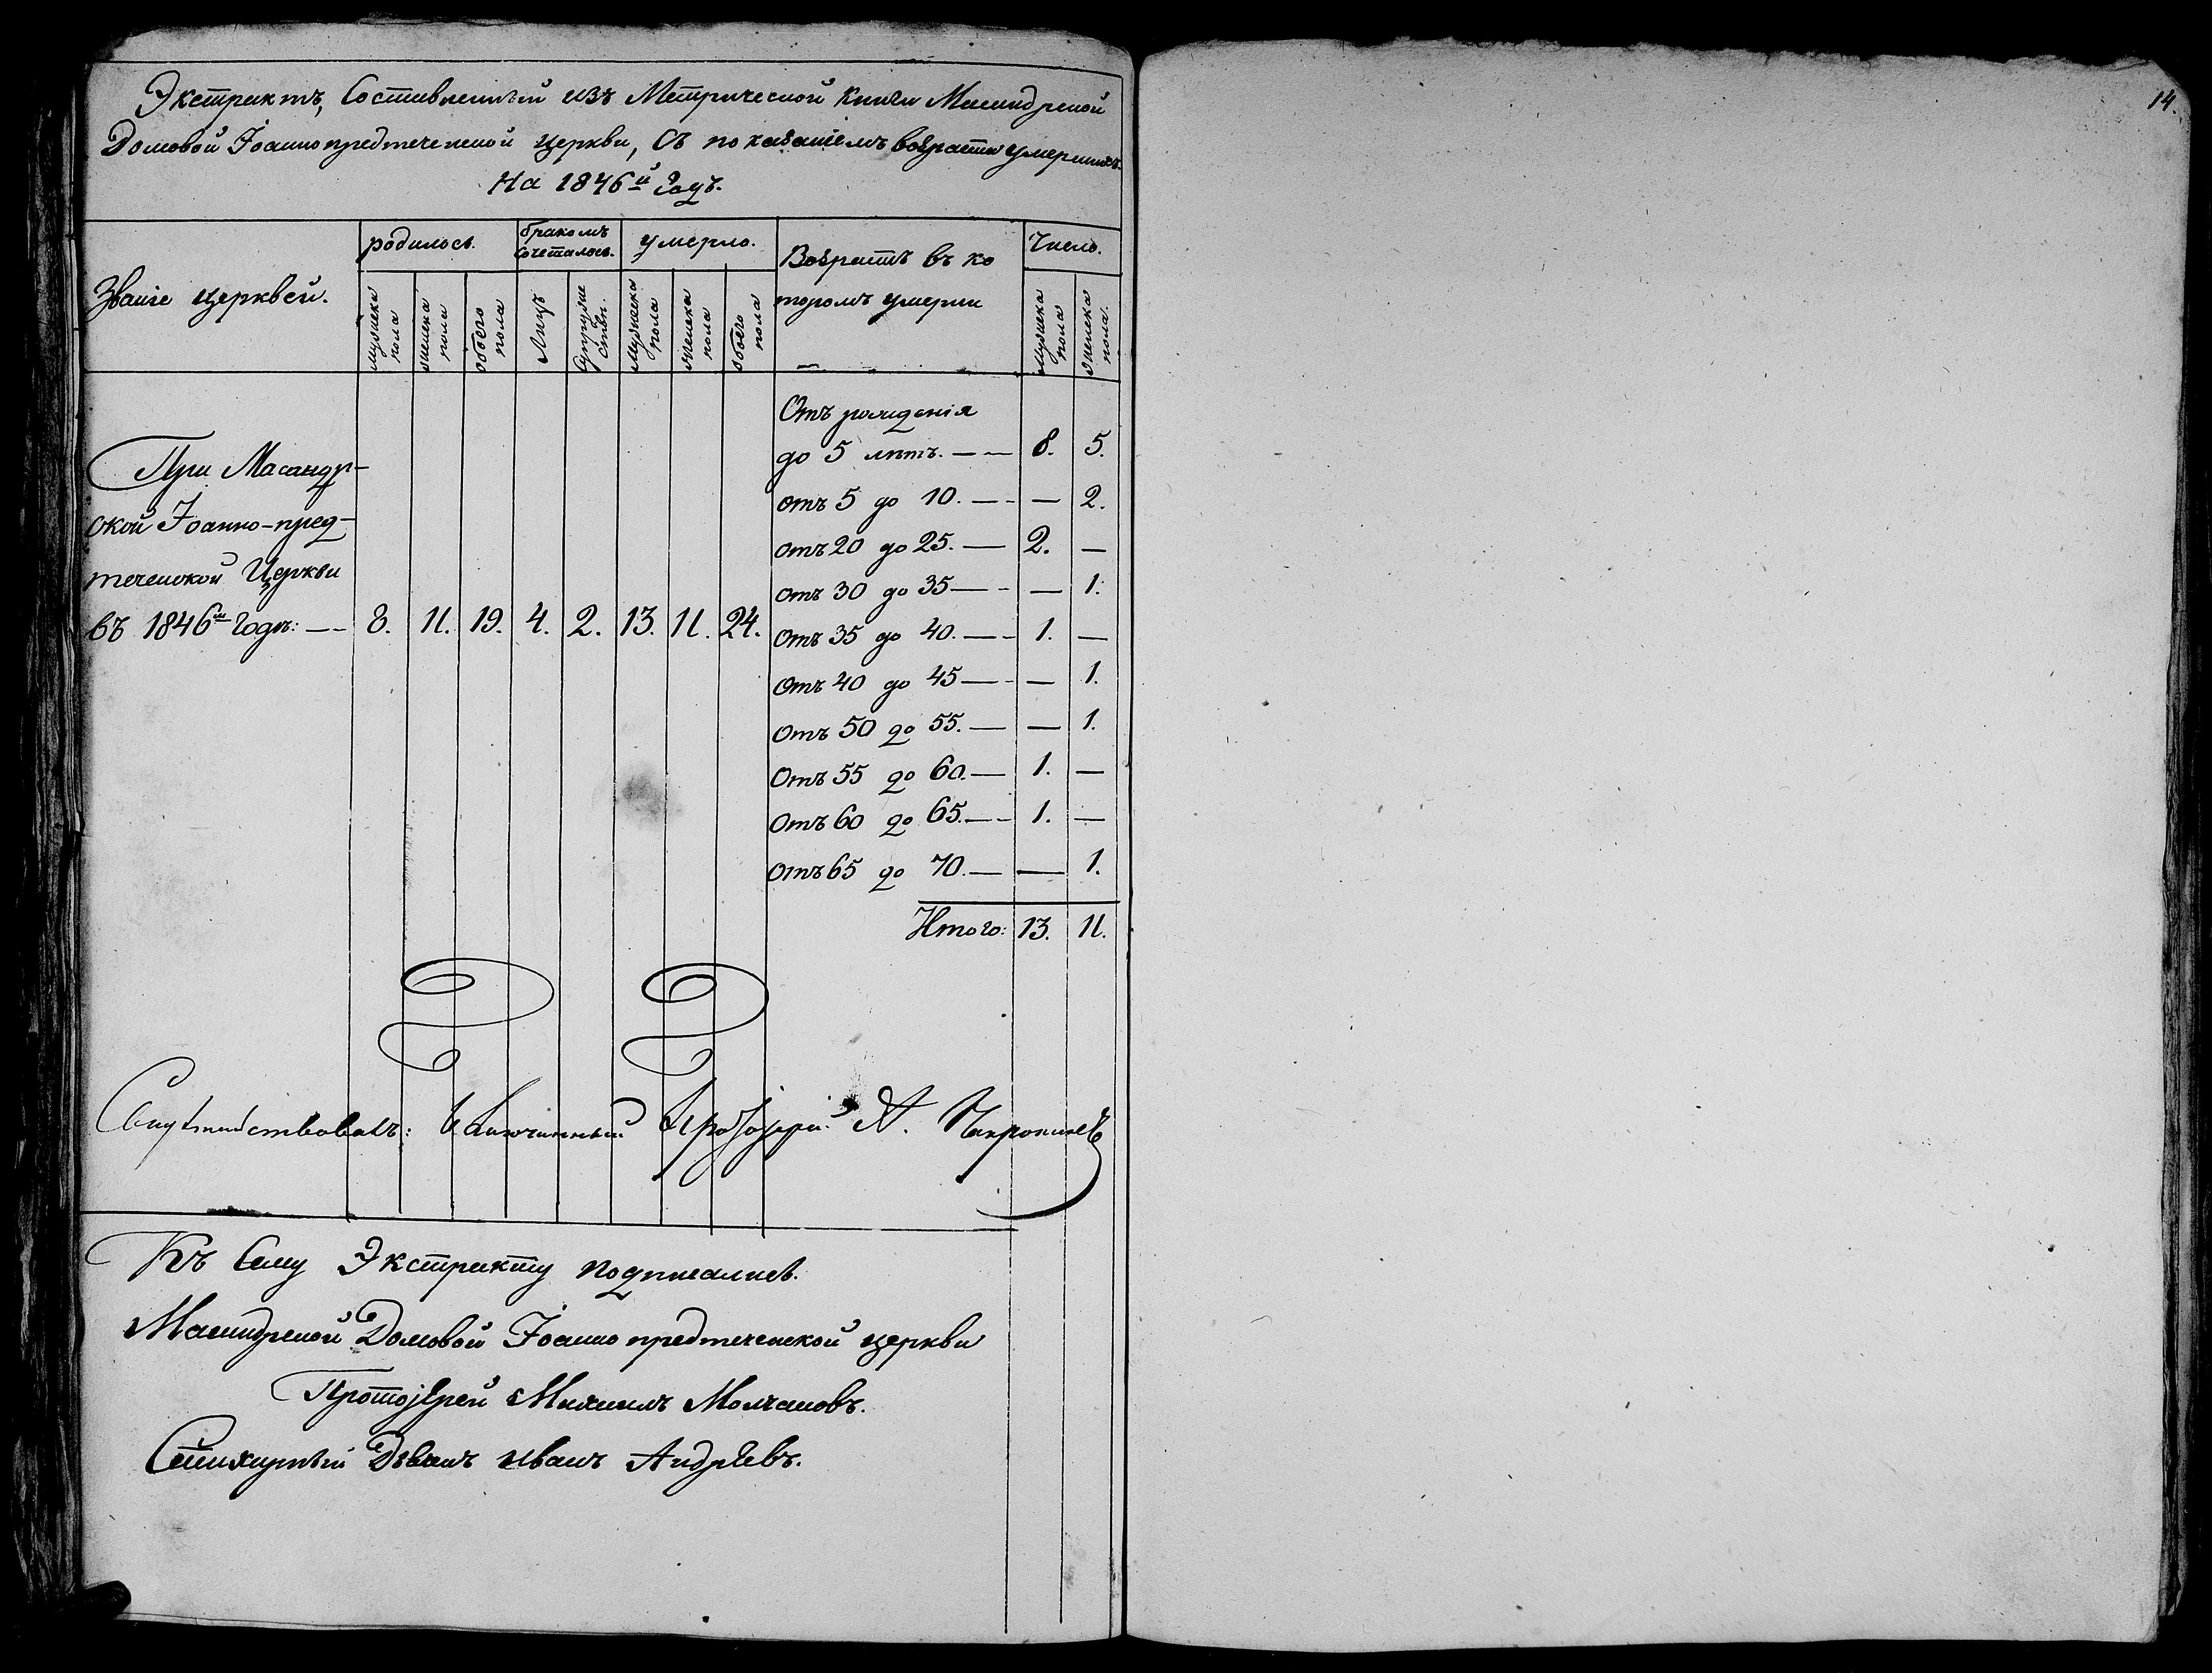 14.
Экстрактъ, Составленный изъ Метрической Книги Масандрской
Домовой Іоаннопредтеченской церкви, Съ показаніемъ возраста умершихъ.
На 1846й Годъ.
Званіе церквей.
родилось.
бракомъ сочеталось.
умерло.
Возрастъ въ ко
торомъ умерли
Число.
мужеска пола
женска пола
обоего пола
Лицъ
Супруже ствъ.
мужеска пола
женска пола
обоего пола
мужеска пола
женска пола.
Отъ рожденія
до 5 лѣтъ. — — 8. 5.
При Масандр-
ской Іоанно-пред-
теченской Церкви
въ 1846мъ Годѣ: — — 8. 11. 19. 4. 2. 13. 11. 24.
отъ 5 до 10. — - — 2.
отъ 20 до 25. — 2. —
отъ 30 до 35 — - — 1.
отъ 35 до 40. — - 1. —
отъ 40 до 45 — - — 1.
отъ 50 до 55. — — 1.
отъ 55 до 60. — 1. —
отъ 60 до 65. — - 1. —
отъ 65 до 70. — — 1.
Итого: 13. 11.
Свидѣтельствовалъ: Благочинный Протоіерей А.
Къ Сему Экстракту подписались.
Масандрской Домовой Іоаннопредтеченской церкви
Протоіерей Михаилъ Молчановъ.
Стихарный Дьякъ Иванъ Андреевъ.